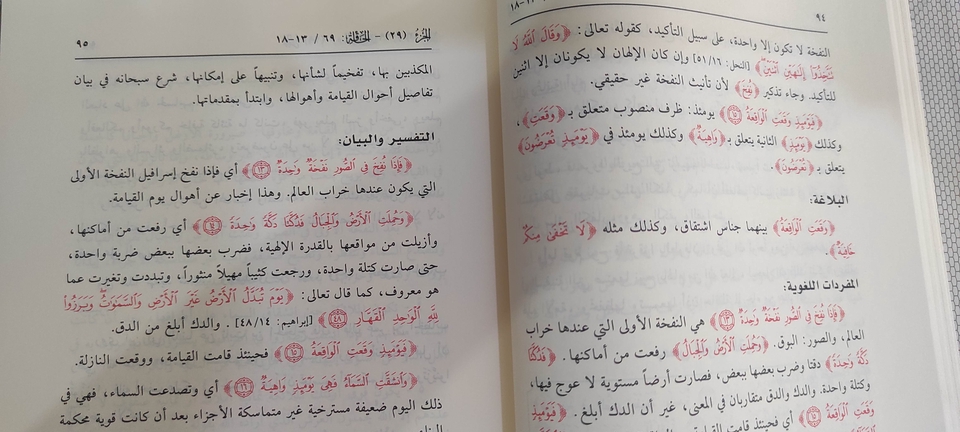 ٩٤
١٣-١٨
النفخة لا تكون إلا واحدة، على سبيل التأكيد، كقوله تعالى: ﴿وَقَالَ اللَّهُ لَا
نَتَّخِذُوا إِلَهَيْنِ اثْنَيْنِ﴾ [النحل: ٥١/١٦] وإن كان الإلهان لا يكونان إلا اثنين
للتأكيد. وجاء تذكير ﴿نُفِخَ﴾ لأن تأنيث النفخة غير حقيقي.
﴿فَيَوْمَئِذٍ وَقَعَتِ الْوَاقِعَةُ ١٥﴾ يومئذ: ظرف منصوب متعلق بـ ﴿وَقَعَتِ﴾،
وكذلك ﴿يَوْمَئِذٍ﴾ الثانية يتعلق بـ ﴿وَاهِيَةٌ﴾ وكذلك يومئذ في ﴿يَوْمَئِذٍ تُعْرَضُونَ﴾
يتعلق بـ ﴿تُعْرَضُونَ﴾.
البلاغة:
﴿وَقَعَتِ الْوَاقِعَةُ﴾ بينهما جناس اشتقاق، وكذلك مثله ﴿لَا تَخْفَى مِنكُمْ
خَافِيَةٌ﴾.
المفردات اللغوية:
﴿فَإِذَا نُفِخَ فِي الصُّورِ نَفْخَةٌ وَاحِدَةٌ ١٣﴾ هي النفخة الأولى التي عندها خراب
العالم، والصور: البوق. ﴿وَحُمِلَتِ الْأَرْضُ وَالْجِبَالُ﴾ رفعت من أماكنها. ﴿فَدُكَّتَا
دَكَّةً وَاحِدَةً﴾ دقتا وضرب بعضها ببعض، فصارت أرضاً مستوية لا عوج فيها،
وكتلة واحدة. والدك والدق متقاربان في المعنى، غير أن الدك أبلغ. ﴿فَيَوْمَئِذٍ
وَقَعَتِ الْوَاقِعَةُ ١٥﴾ أي فحينئذ قامت القيامة
الجزء (٢٩) - الحاقة: ٦٩ / ١٣-١٨
٩٥
المكذبين بها، تفخيماً لشأنها، وتنبيهاً على إمكانها، شرع سبحانه في بيان
تفاصيل أحوال القيامة وأهوالها، وابتدأ بمقدماتها.
التفسير والبيان:
﴿فَإِذَا نُفِخَ فِي الصُّورِ نَفْخَةٌ وَاحِدَةٌ ١٣﴾ أي فإذا نفخ إسرافيل النفخة الأولى
التي يكون عندها خراب العالم. وهذا إخبار عن أهوال يوم القيامة.
﴿وَحُمِلَتِ الْأَرْضُ وَالْجِبَالُ فَدُكَّتَا دَكَّةً وَاحِدَةً ١٤﴾ أي رفعت من أماكنها،
وأزيلت من مواقعها بالقدرة الإلهية، فضرب بعضها ببعض ضربة واحدة،
حتى صارت كتلة واحدة، ورجعت كثيباً مهيلاً منثوراً، وتبددت وتغيرت عما
هو معروف، كما قال تعالى: ﴿يَوْمَ تُبَدَّلُ الْأَرْضُ غَيْرَ الْأَرْضِ وَالسَّمَوَاتُ وَبَرَزُوا
لِلَّهِ الْوَاحِدِ الْقَهَّارِ ٤٨﴾ [إبراهيم: ٤٨/١٤]. والدك أبلغ من الدق.
﴿فَيَوْمَئِذٍ وَقَعَتِ الْوَاقِعَةُ ١٥﴾ فحينئذ قامت القيامة، ووقعت النازلة.
﴿وَانشَقَّتِ السَّمَاءُ فَهِيَ يَوْمَئِذٍ وَاهِيَةٌ ١٦﴾ أي وتصدعت السماء، فهي في
ذلك اليوم ضعيفة مسترخية غير متماسكة الأجزاء بعد أن كانت قوية محكمة